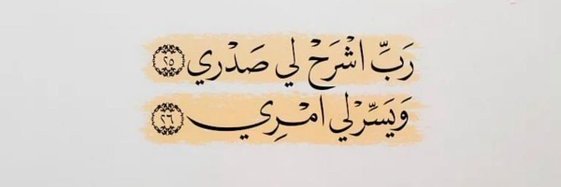 رَبِّ اشْرَحْ لِي صَدْرِي ٢٥
وَيَسِّرْ لِي امْرِي ٢٦